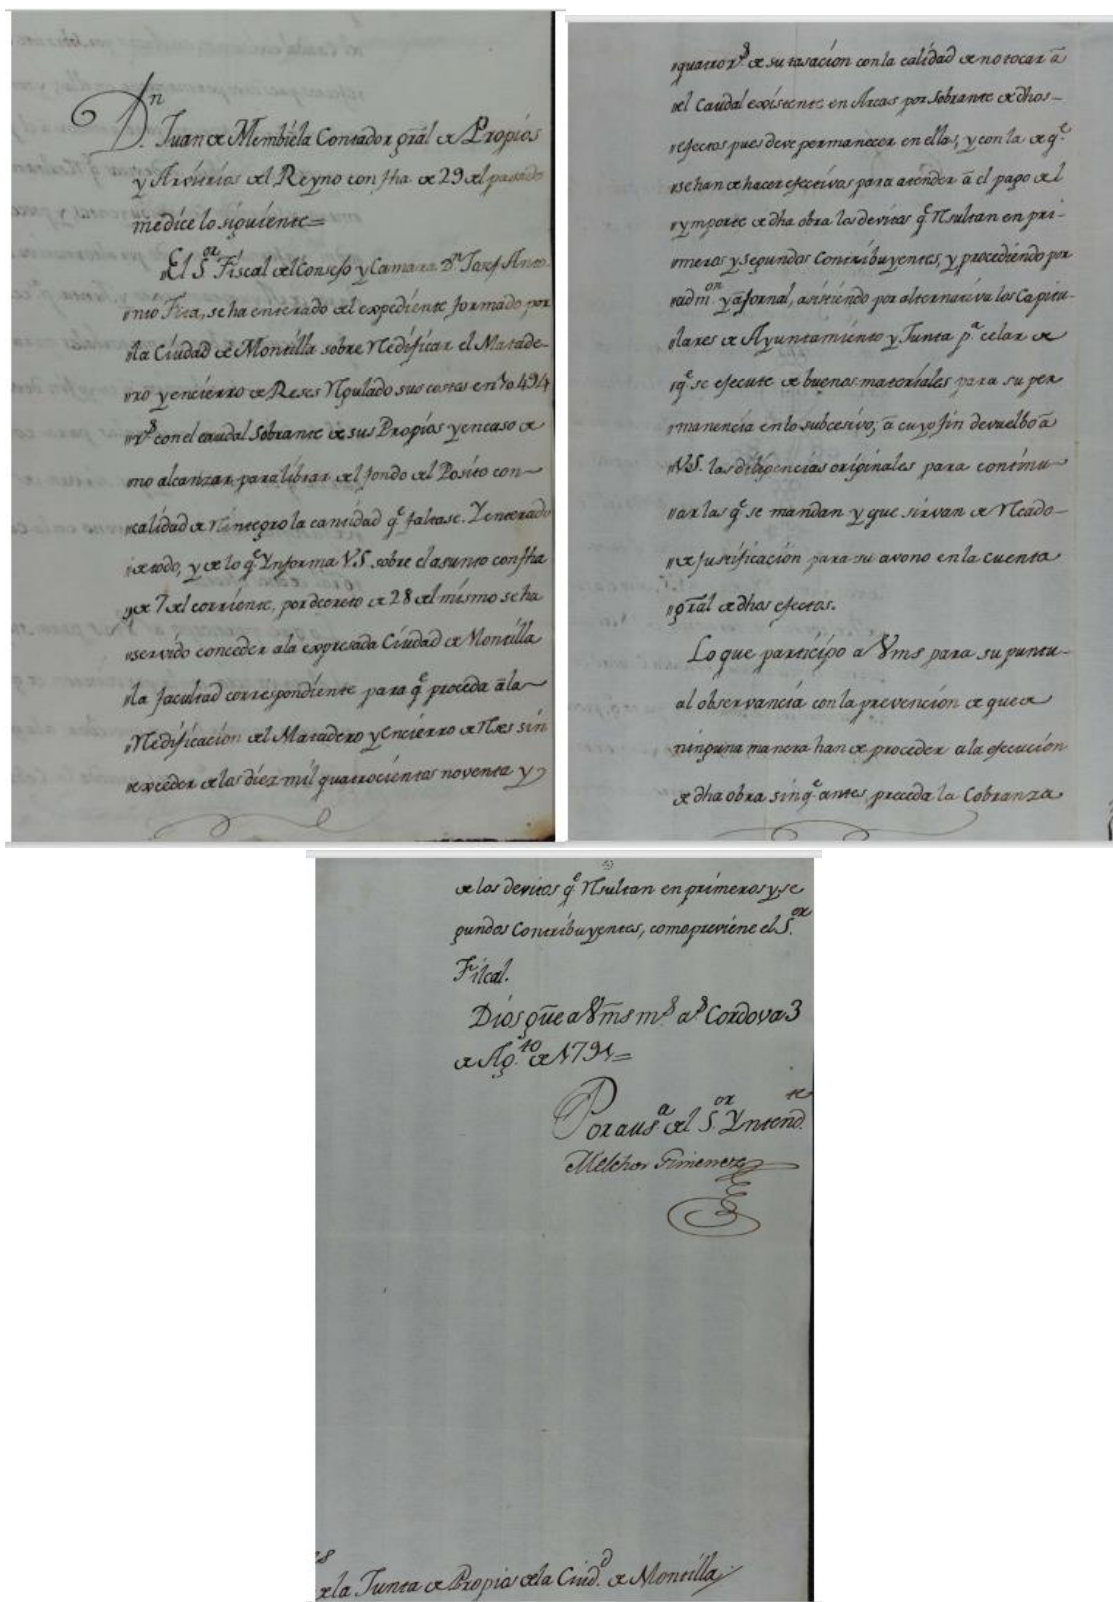 Dn
Juan de Membiela Contador gral de Propios
y Arvitrios del Reyno con fha de 29 del pasado
me dice lo siguiente=
El Sor Fiscal del Consejo y Camara Dn Josef Anto-
"nio Fita, se ha enterado del expediente formado por
"la Ciudad de Montilla sobre reedificar el Matade-
"ro y encierro de Reses regulado sus costas en 10494
"rs con el caudal sobrante de sus Propios y en caso de
"no alcanzar para librar del fondo del Posito con-
"calidad de reintegro la cantidad qe faltase. Y enterado
"de todo, y de lo qe Ynforma VS. sobre el asunto con fha
"de 7 del corriente, por decreto de 28 del mismo se ha
"servido conceder a la expresada Ciudad de Montilla
"la facultad correspondiente para qe proceda a la
"reedificacion del Matadero y encierro de reses sin
"exceder de los diez mil quatrocientos noventa y
"quatro rs de su tasacion con la calidad de no tocar a
"el Caudal existente en Arcas por sobrante de dhos
"efectos pues deve permanecer en ellas, y con la de qe
"se han de hacer efectivos para atender a el pago del
"ymporte de dha obra los devitos qe resultan en pri-
"meros y segundos Contribuyentes, y procediendo por
"admon y a jornal, asistiendo por alternativa los Capitu-
"lares de Ayuntamiento y Junta pa celar de
"qe se efecute de buenos materiales para su per
"manencia en lo subcesivo; a cuyo fin devuelbo a
"VS. las diligencias originales para continu-
"ar las qe se mandan y que sirvan de recado-
"de justificacion para su avono en la cuenta
"gral de dhos efectos.
Lo que participo a Vms para su puntu-
al observancia con la prevencion de que de
ninguna manera han de proceder a la efecucion
de dha obra sin qe antes preceda la Cobranza
de los devitos qe resultan en primeros y se
gundos Contribuyentes, como previene el Sor
Fiscal.
Dios gue a Vms ms as Cordova 3
de Agto de 1791=
Por ausa del Sor Yntendte
Melchor Gimenez
de la Junta de Propios de la Ciudd de Montilla